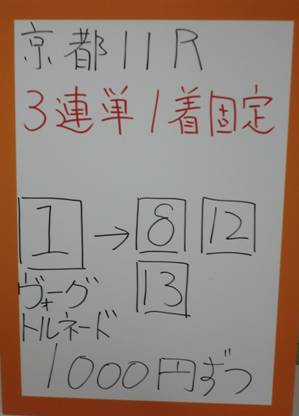 京都11R
3連単1着固定
1→8 12
13
ヴォーグ
トルネード
1000円ずつ